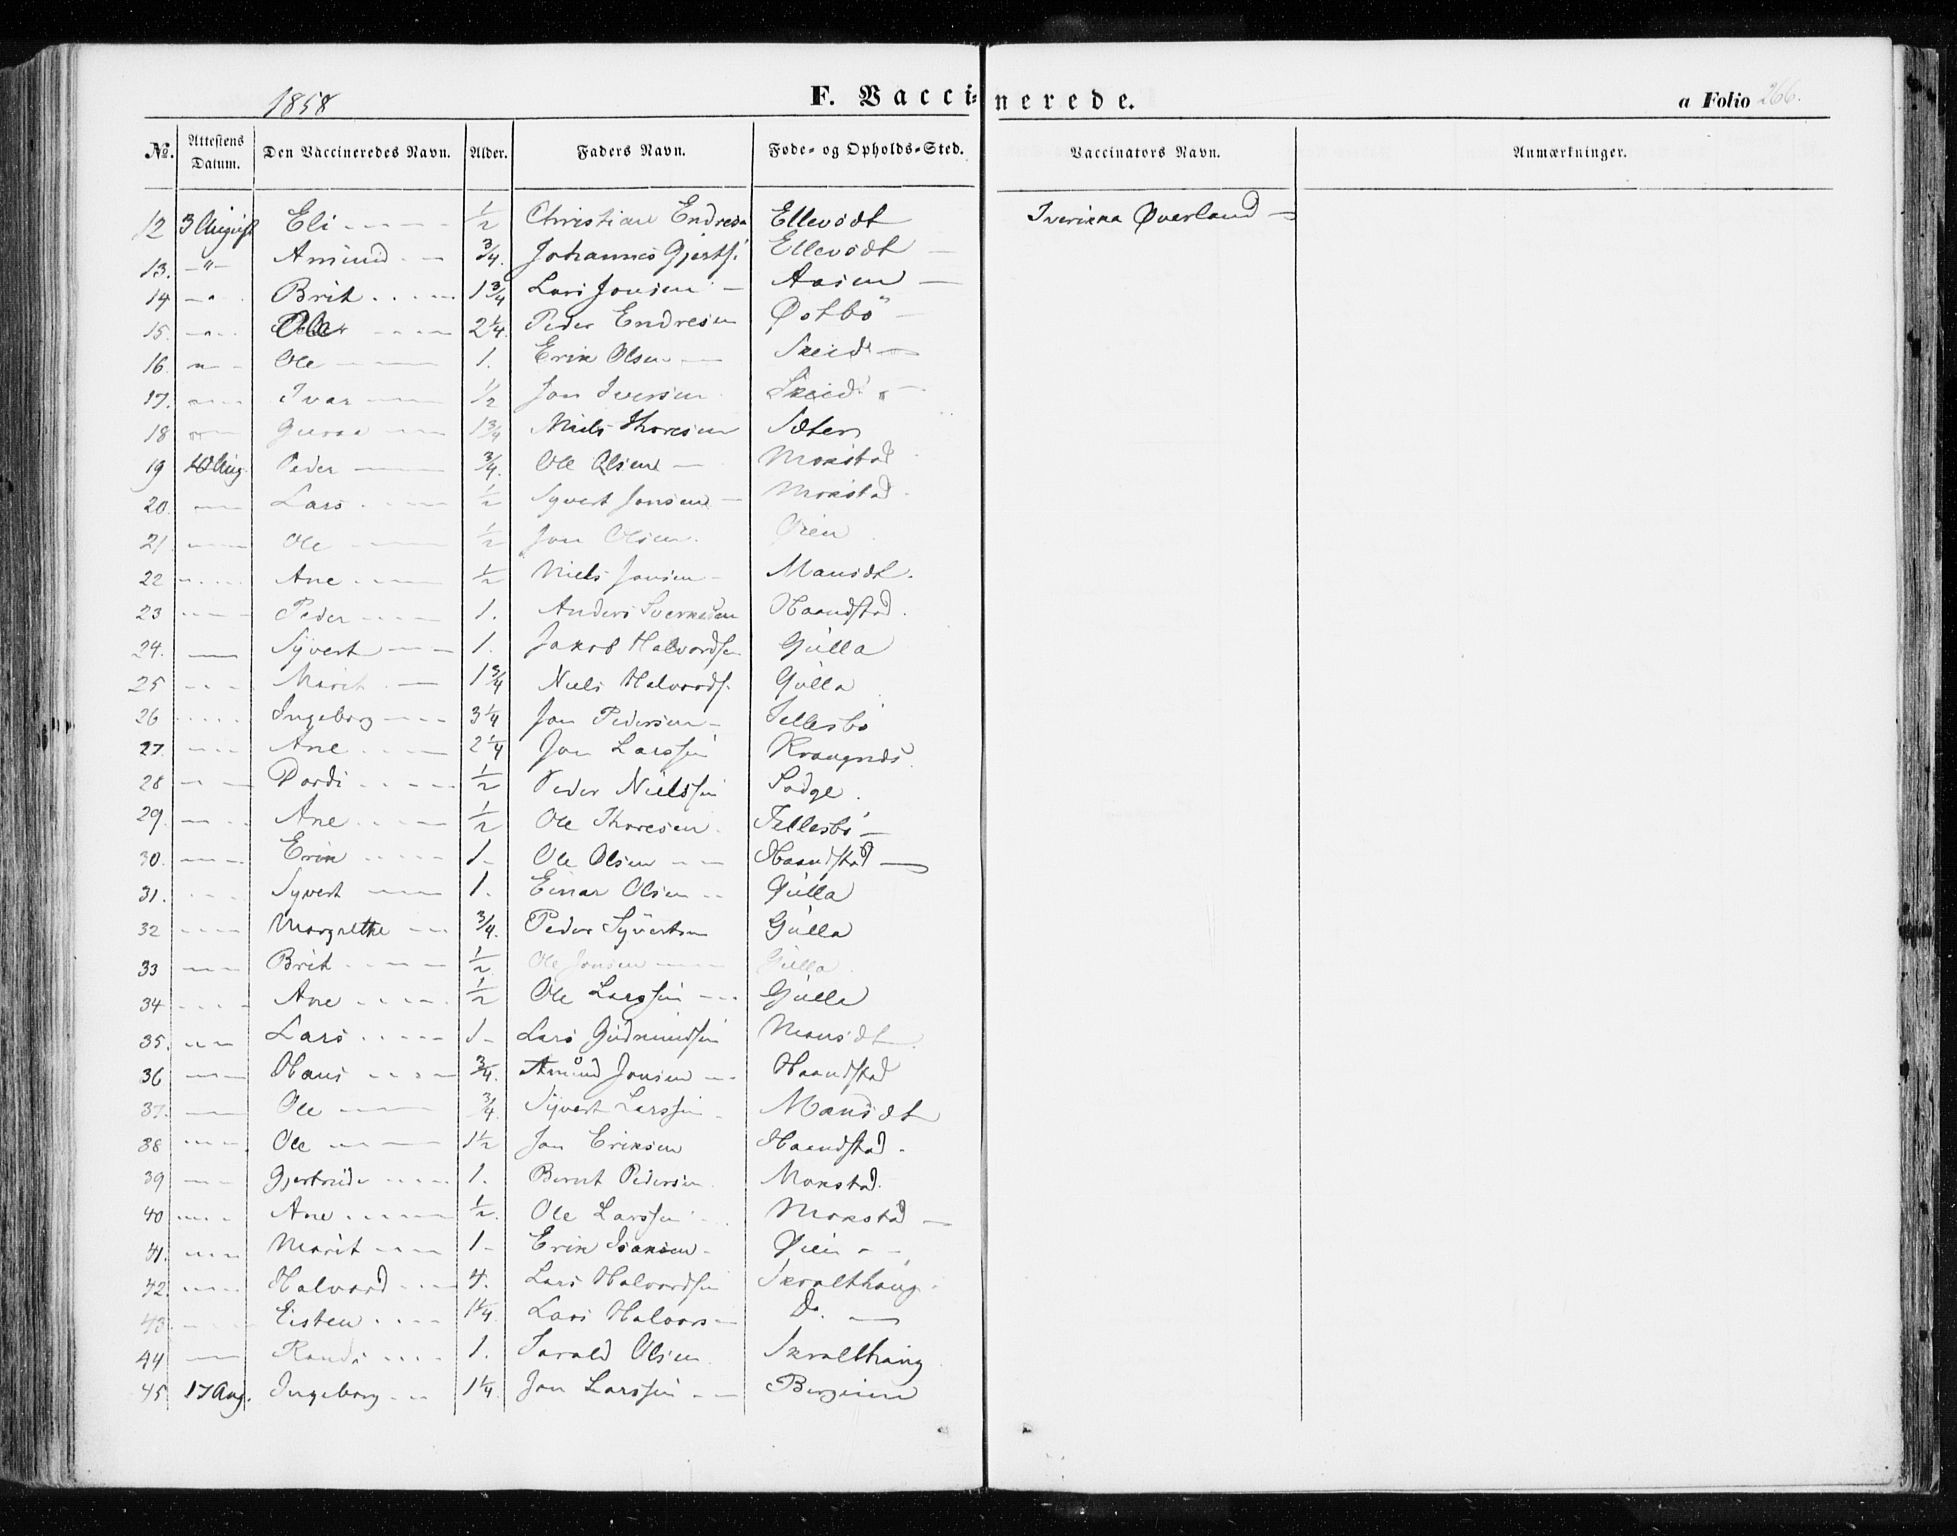 1858 F. Vaccinerede. a Folio 266.
No. Attestens Datum. Den Vaccineredes Navn. Alder. Faders Navn. Føde- og Opholds-Sted. Vaccinators Navn. Anmærkninger.
12 3 August Eli 1/2 Christian Endres Ellevodt Overland
13. -"- Amund 3/4. Johannes Gjerts. Ellevodt
14 -"- Brit 1 3/4 Lars Jonsen Aasen
15. -"- Ole 2 1/4. Peder Endresen Østbö
16. " Ole 1. Erik Olsen Skeid
17. Ivar 1/2 Jon Iversen Skeid
18 Guroe 1 3/4 Niels Thoresen Sæter
19 10 Aug. Peder 3/4. Ole Olsen Mokstad
20. Lars 1/2 Syvert Jonsen Mokstad
21. Ole 1/2 Jon Olsen Øien
22 Ane 1/2 Niels Jonsen
23 Peder 1. Anders Sverkesen Haandstad.
24. Syvert 1. Jakob Halvordsen Gülla
25 Marit 1 3/4 Niels Halvords. Gülla
26 Ingeborg 3 1/4 Jon Pedersen Tellesbö
27. Ane 2 1/4 Jon Larssen
28 Dordi 1/2 Peder Nielssen Sodge.
29. Ane 1/2 Ole Thoresen Tellesbö
30. Erik 1. Ole Olsen Haandstad
31. Syvert 1. Einar Olsen Gülla
32 Margrethe 3/4. Peder Syvertsen Gülla
33 Brit 1/2. Ole Jonsen Gülla
34 Ane 1/2 Ole Larssen Gülla
35. Lars 1. Lars Gudmundsen
36 Hans 3/4. Amund Jonsen Haandstad
37. Ole 3/4. Syvert Larssen
38 Ole 1 1/2 Jon Eriksen Haandstad.
39 Gjertrude 1. Bernt Pedersen Mokstad.
40 Ane 1/2. Ole Larssen Mokstad
41. Marit 1. Erik Isaksen Øien
42. Halvard 4. Lars Halvordsen Skralthaug
43. Eisten 1 1/4. Lars Halvors Do.
44 Randi 1. Harald Olsen Skralthaug
45 17 Aug. Ingeborg 1 1/4. Jon Larssen